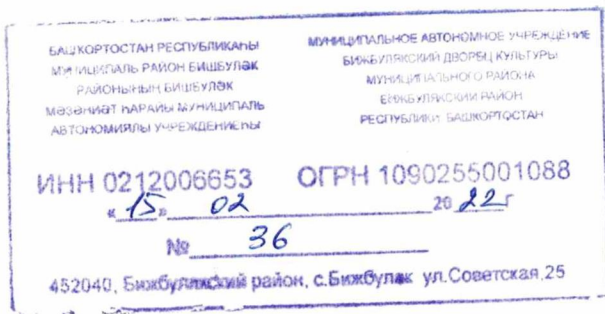 БАШКОРТОСТАН РЕСПУБЛИКАҺЫ
МУНИЦИПАЛЬ РАЙОН БИШБҮЛӘК
РАЙОНЫНЫН БИШБҮЛӘК
МӘҘӘНИӘТ ҺАРАЙЫ МУНИЦИПАЛЬ
АВТОНОМИЯЛЫ УЧРЕЖДЕНИЕҺЫ
МУНИЦИПАЛЬНОЕ АВТОНОМНОЕ УЧРЕЖДЕНИЕ
БИЖБУЛЯКСКИЙ ДВОРЕЦ КУЛЬТУРЫ
МУНИЦИПАЛЬНОГО РАЙОНА
БИЖБУЛЯКСКИЙ РАЙОН
РЕСПУБЛИКИ БАШКОРТОСТАН
ИНН 0212006653 ОГРН 1090255001088
« 15 » 02 20 22 г
№ 36
452040, Бижбулякский район, с.Бижбуляк ул.Советская,25